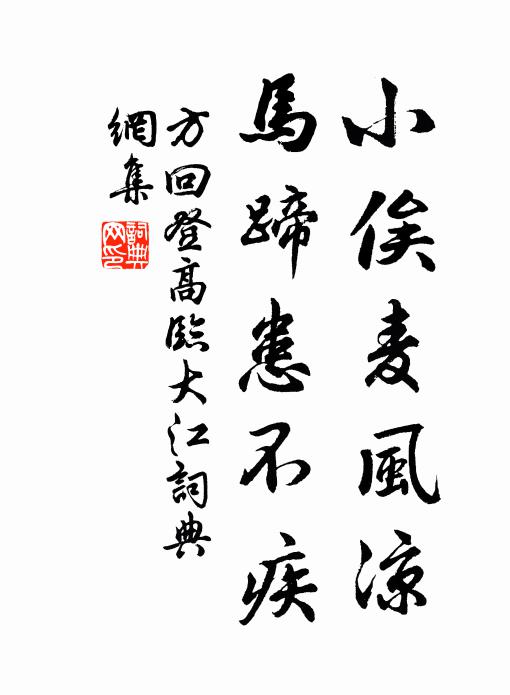 小俟麦風涼
馬蹄患不疾
方回登高臨大江詞典
網集
詞典
网印